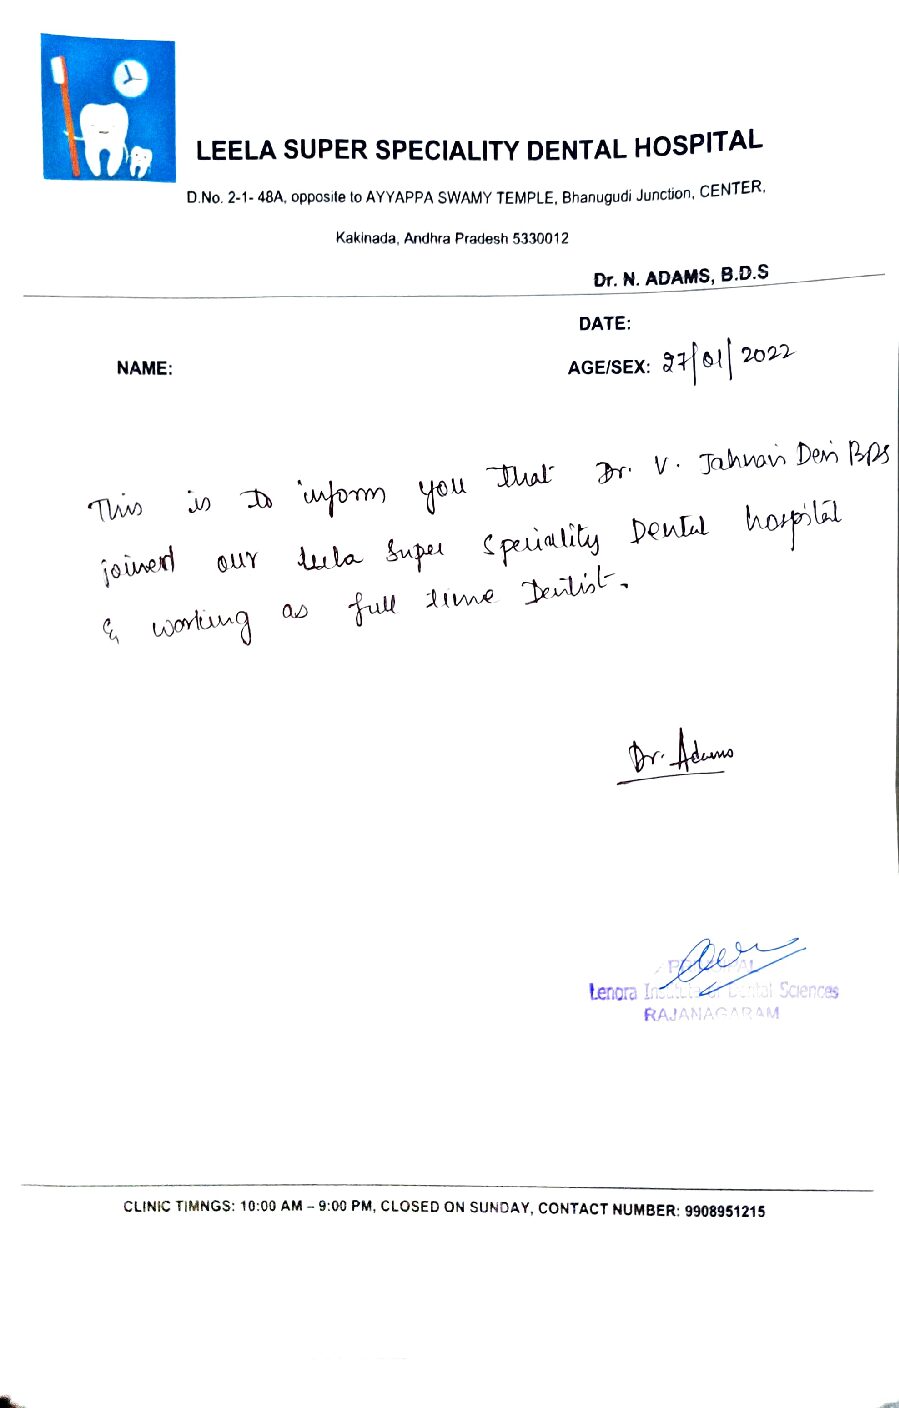 LEELA SUPER SPECIALITY DENTAL HOSPITAL
D.No. 2-1- 48A, opposite to AYYAPPA SWAMY TEMPLE, Bhanugudi Junction, CENTER,
Kakinada, Andhra Pradesh 5330012
Dr. N. ADAMS, B.D.S
DATE:
NAME:
AGE/SEX: 27/01/2022
This is to inform you that Dr. V. Jahnavi Devi BDS
joined our leela Super Speciality Dental hospital
& working as full time Dentist.
Dr. Adams
PRINCIPAL
Lenora Institute of Dental Sciences
RAJANAGARAM
CLINIC TIMNGS: 10:00 AM – 9:00 PM, CLOSED ON SUNDAY, CONTACT NUMBER: 9908951215